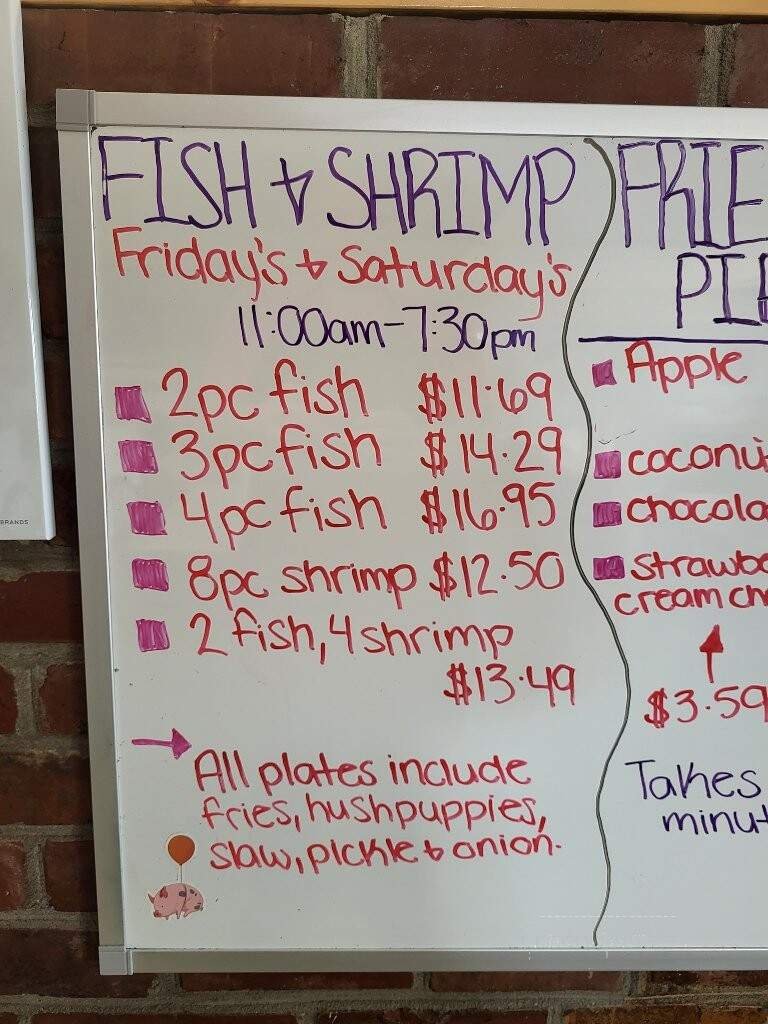 FISH & SHRIMP
Friday's & Saturday's
11:00am-7:30pm
2pc fish $11.69
3pc fish $14.29
4pc fish $16.95
8pc shrimp $12.50
2 fish, 4 shrimp
$13.49
All plates include
fries, hushpuppies,
slaw, pickle & onion.
FRIE
PI
Apple
coconu
chocola
strawbe
cream ch
$3.59
Takes
minut
BRANDS